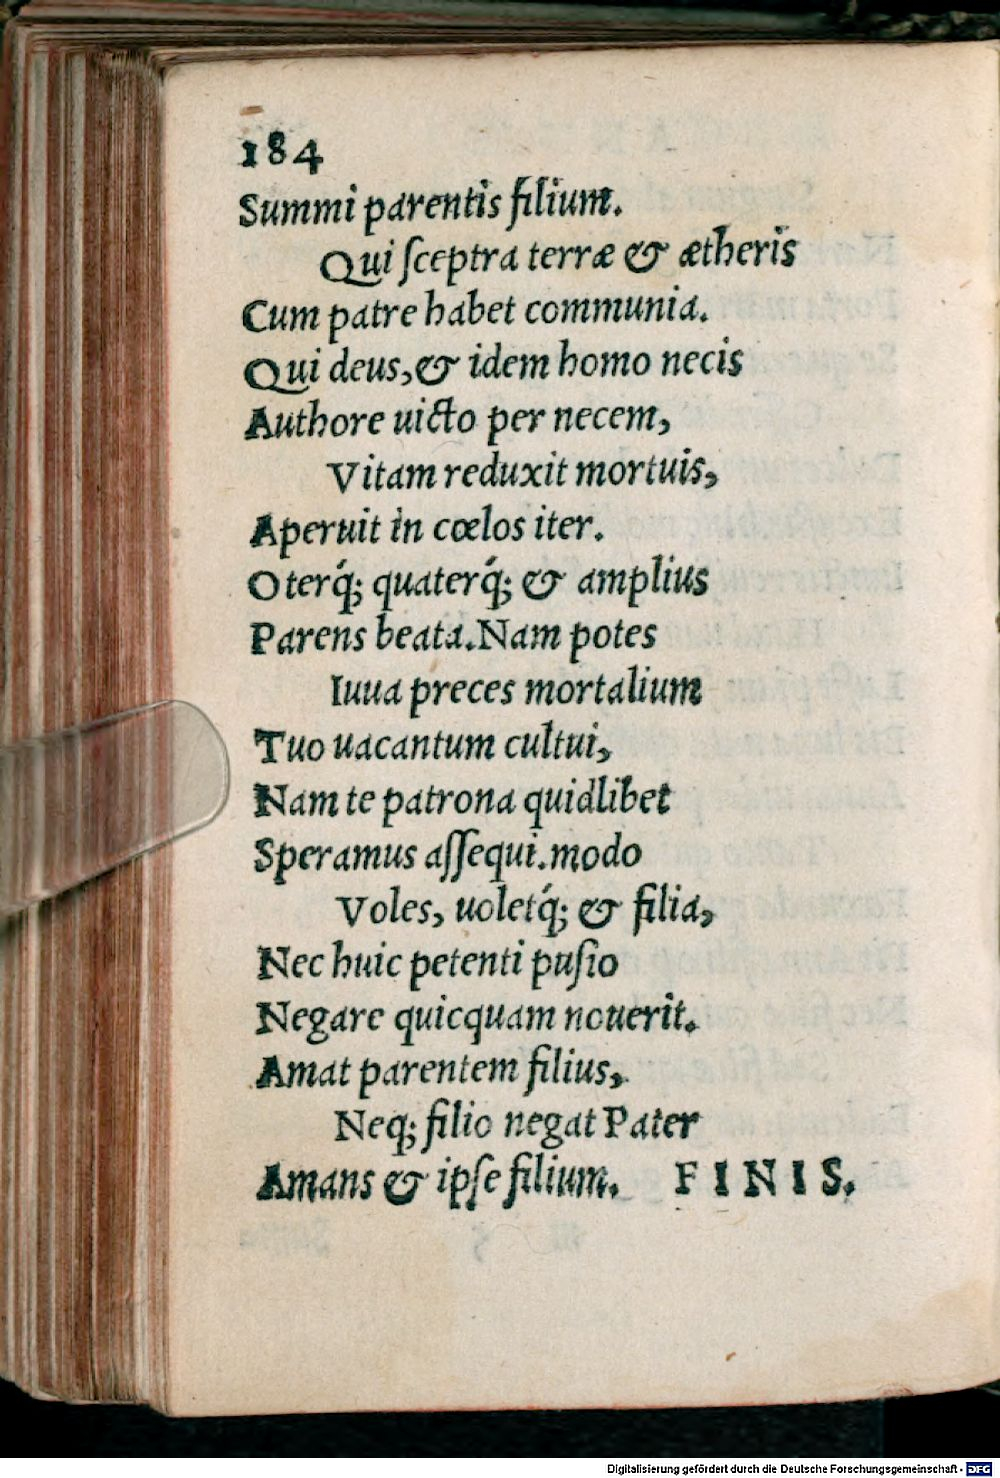 184
Summi parentis filium.
Qui ſceptra terræ & ætheris
Cum patre habet communia.
Qui deus,& idem homo necis
Authore uicto per necem,
Vitam reduxit mortuis,
Aperuit in cœlos iter.
O terq́; quaterq́; & amplius
Parens beata.Nam potes
Iuua preces mortalium
Tuo uacantum cultui,
Nam te patrona quidlibet
Speramus aſſequi.modo
Voles, uoletq́; & filia,
Nec huic petenti puſio
Negare quicquam nouerit.
Amat parentem filius,
Neq; filio negat Pater
Amans & ipſe filium. FINIS.
Digitalisierung gefördert durch die Deutsche Forschungsgemeinschaft - DFG